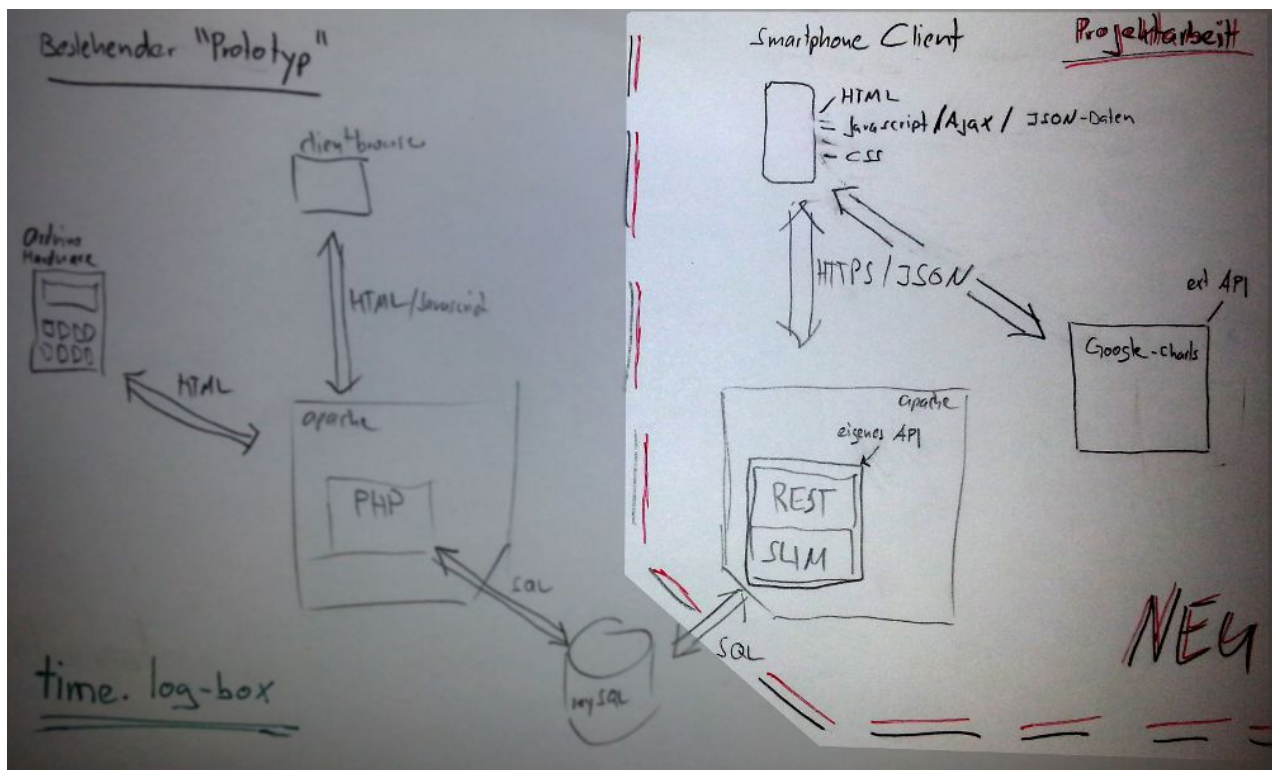 Bestehender "Prototyp"
clientbrowser
Arduino
Hardware
HTML/Javascript
HTML
apache
PHP
SQL
mySQL
time.log-box
Smartphone Client
Projektarbeit
HTML
Javascript/Ajax/JSON-Daten
CSS
HTTPS/JSON
ext API
Google-Charts
apache
eigenes API
REST
SLIM
SQL
NEU